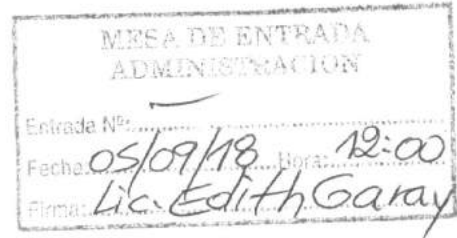 MESA DE ENTRADA
ADMINISTRACION
Entrada Nº: —
Fecha: 05/09/18 Hora: 12:00
Firma: Lic. Edith Garay